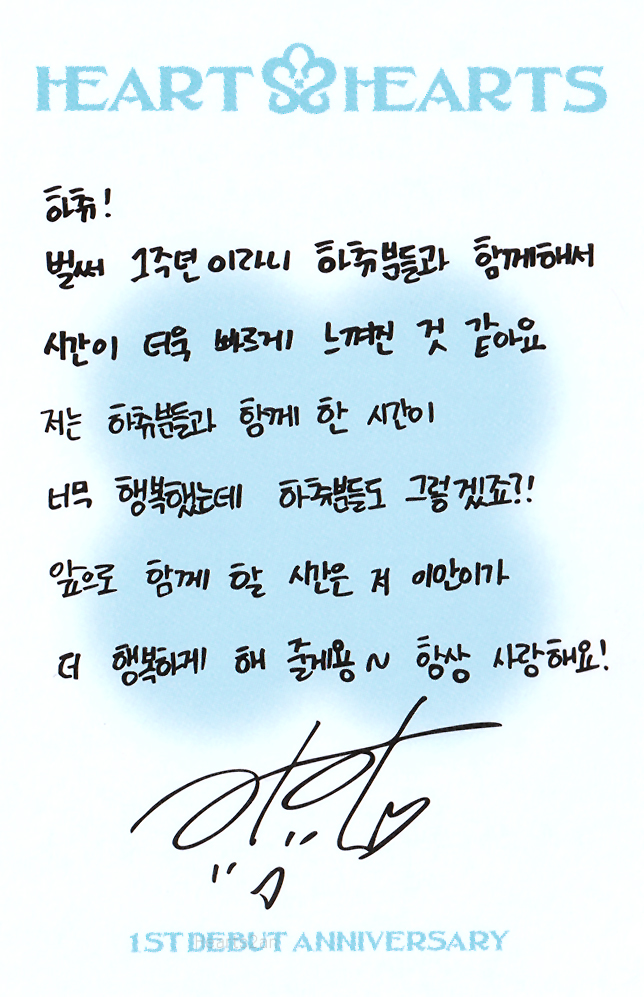 HEART HEARTS
하츄!
벌써 1주년이라니 하츄분들과 함께해서
시간이 더욱 빠르게 느껴진 것 같아요
저는 하츄분들과 함께 한 시간이
너무 행복했는데 하츄분들도 그렇겠죠?!
앞으로 함께 할 시간은 저 이안이가
더 행복하게 해 줄게용~ 항상 사랑해요!
1ST DEBUT ANNIVERSARY